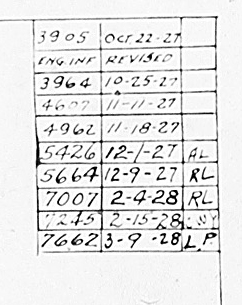 3905 OCT 22-27
ENG. INF REVISED
3964 10-25-27
4607 11-11-27
4962 11-18-27
5426 12-1-27 AL
5664 12-9-27 RL
7007 2-4-28 RL
7245 2-15-28
7662 3-9-28 L.P.